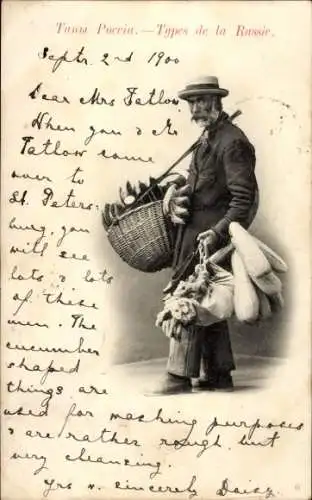 Типы Россіи. — Types de la Russie.
Sept. 2nd 1900
Dear Mrs Tatlow,
When you & Mr
Tatlow come
over to
St. Peters-
burg, you
will see
lots & lots
of these
men. The
cucumber
shaped
things are
used for washing purposes
& are rather rough, but
very cleansing.
Yrs v. sincerely Daisy